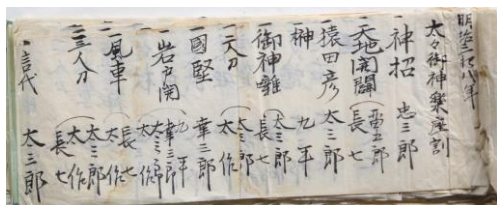 明治三拾八年
太々御神楽座割
一神招 忠三郎
一天地開闢 富五郎 長七
一猿田彦 太三郎
一榊 九平
一御神雛 太三郎 長七
一二人刀 太三郎 太作
一國堅 幸三郎
一岩戸開 九平 幸三郎 太三郎 太作
一風車 長七 太作
一三人刀 太三郎 太作 長七
一言代 太三郎